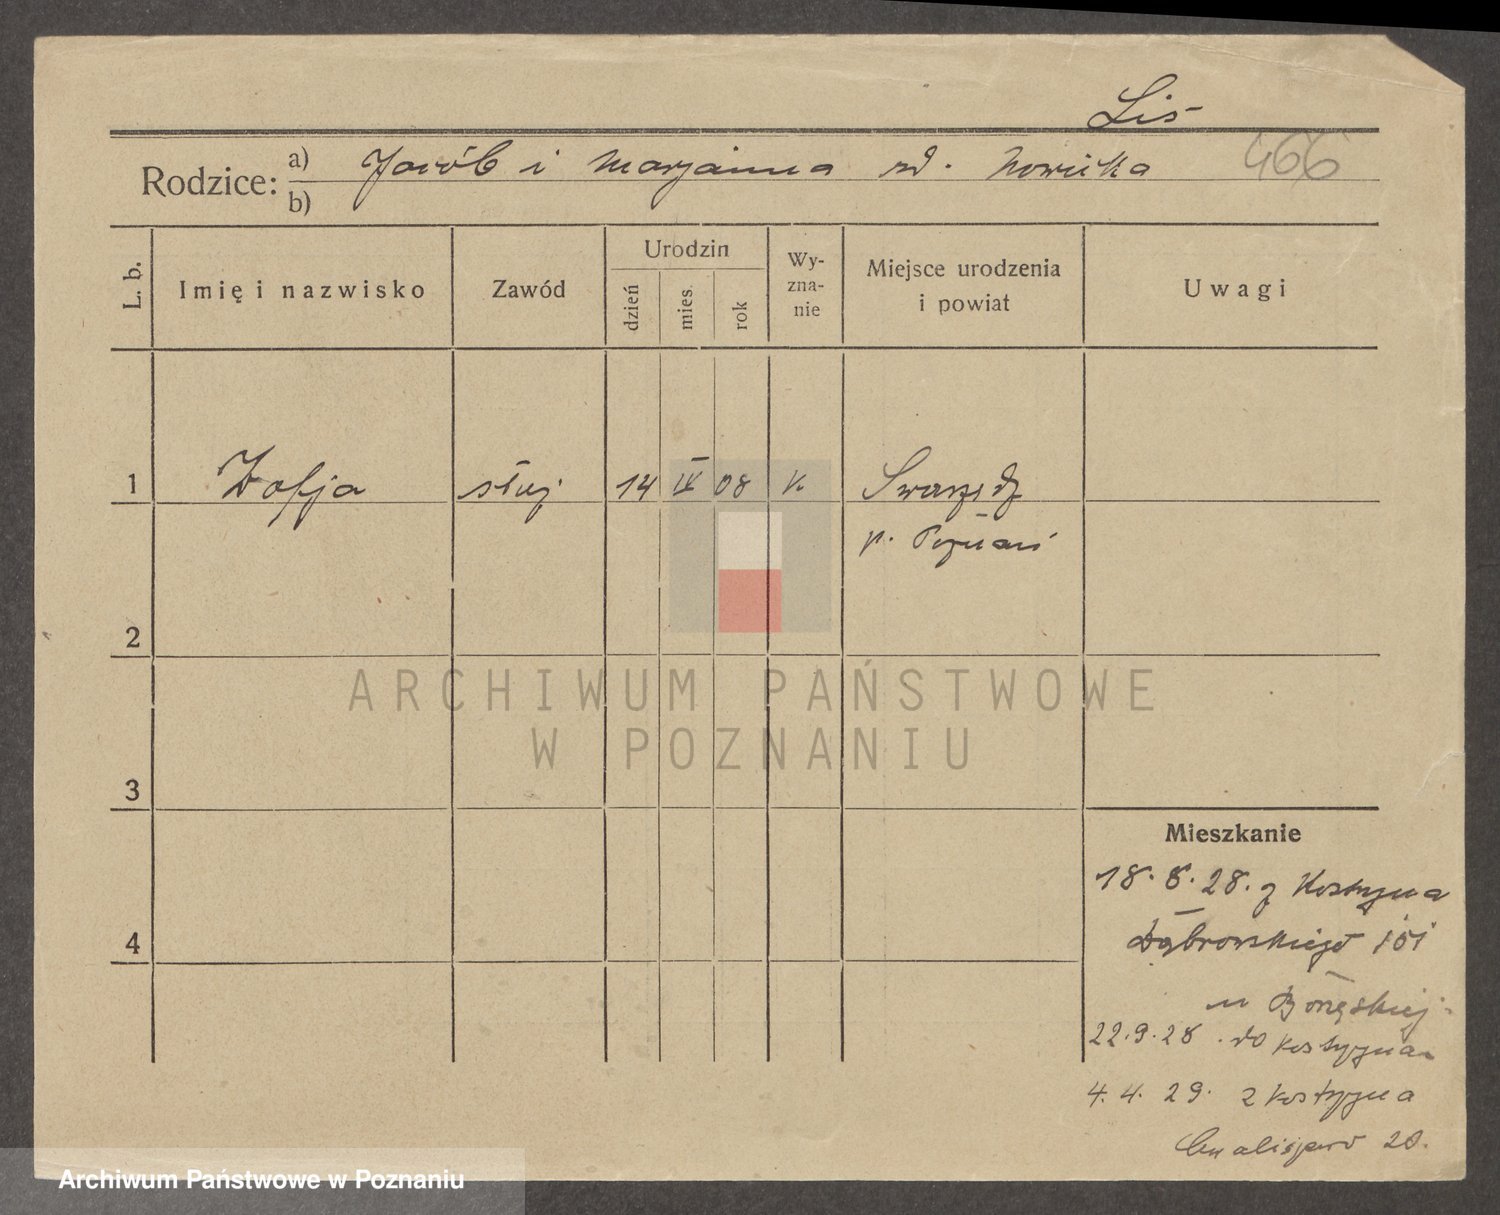 Liś
Rodzice: a) b) Jakób i Marjanna zd. Nowicka 466
L. b.
Imię i nazwisko
Zawód
Urodzin
dzień
mies.
rok
Wy-
zna-
nie
Miejsce urodzenia
i powiat
Uwagi
1 Zofja służ 14 IV 08 k Swarzędz
p. Poznań
2
3
4
Mieszkanie
18.8.28. z Kostrzyna
Dąbrowskiego 101
u
22.9.28. do Kostrzyna
4.4.29. z Kostrzyna
20.
ARCHIWUM PAŃSTWOWE
W POZNANIU
Archiwum Państwowe w Poznaniu